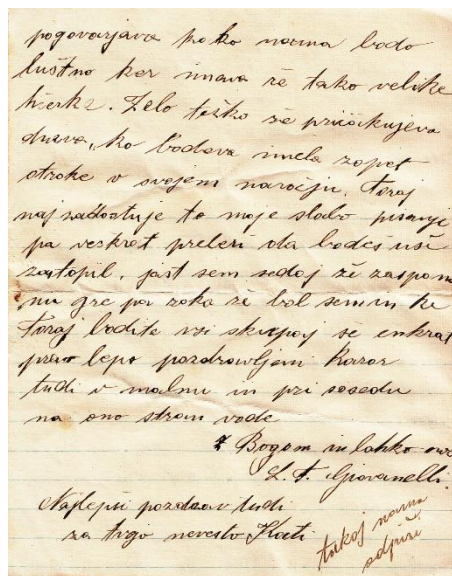 pogovarjava kako nama bodo
luštno ker imava že tako velike
hčerke. Zelo težko že pričakujeva
dneva, ko bodeva imela zopet
otroke v svojem naročju. Toraj
naj zadostuje to moje slabo pisanje
pa večkrat preberi da bodes vse
zastopil, jast sem sedaj že zaspana
mi gre pa roka že bol sem in ke
Toraj bodite vsi skupaj še enkrat
prav lepo pozdravljeni kakor
tudi v malnu in pri sosedu
na ono stran vode
z Bogom in lahko noč
L. F. Giovanelli.
Najlepši pozdrav tudi
za tvojo nevesto Kati
takoj nama
odpiši